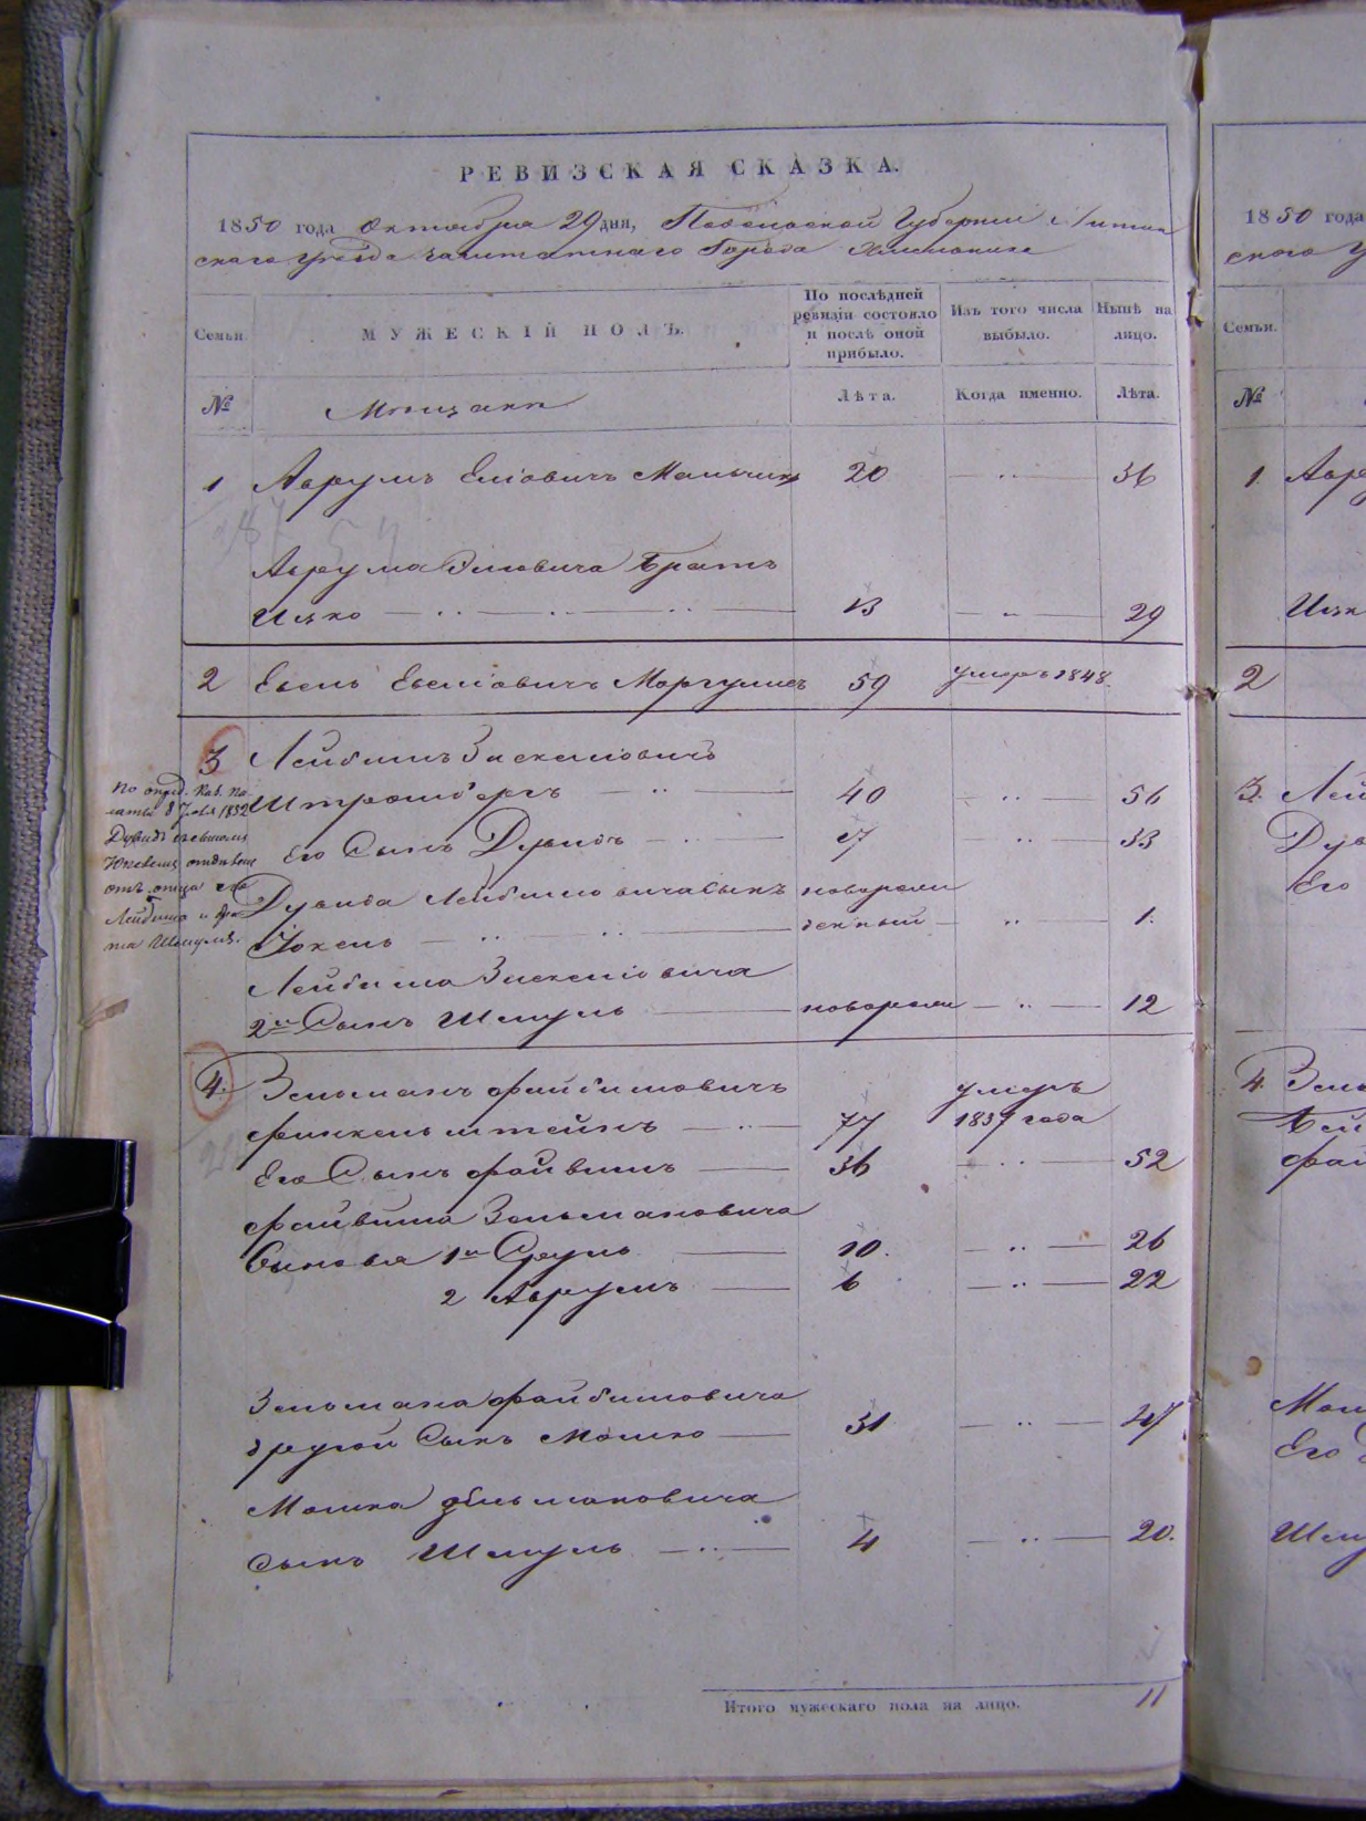 РЕВИЗСКАЯ СКАЗКА.
1850 года Октября 29 дня, Подольской Губернии Литин
скаго уезда заштатнаго Города Хмельника
Семьи.
МУЖЕСКІЙ ПОЛЪ.
По послѣдней ревизіи состояло и послѣ оной прибыло.
Изъ того числа выбыло.
Нынѣ на лицо.
№
Мещане
Лѣта.
Когда именно.
Лѣта.
1 Аврумъ Еліовичъ 20 — " — 36
Аврума Эліовича братъ
Ицко — " — " — " — 13 — " — 29
2 Евель Евеліовичъ Моргулисъ 59 умеръ 1848
3 Лейбишъ Хаскеліовичъ
Штромберъ — " — 40 — " — 56
Его Сынъ Дувидъ — " — 17 — " — 33
Дувида Лейбишовича сынъ новорож
Іокель — " — " — денный — " — 1.
Лейбиша Хаскеліовича
2й Сынъ Шмуль — новорож — " — 12
По опред. Каз. Па
латы 8 1852
Дувидъ съ сыномъ
отъ отца его
Лейбиша и бра
та Шмуля.
4. Зельманъ Файбишовичъ умеръ
Финкельштейнъ — " — 77 1837 года
Его Сынъ Файвишъ — 36 — " — 52
Файвиша Зельмановича
Сыновья 1й Сруль — 10. — " — 26
2 Аврумъ — 6 — " — 22
Зельмана Файбишовича
другой Сынъ Мошко — 31 — " — 47
Мошка Зельмановича
Сынъ Шмуль — " — 4 — " — 20.
Итого мужескаго пола на лицо. 11
1850 года
ского у
Семьи.
№
1. Авр
Ицк
2
3. Лей
Дув
Его
4. Зель
Фай
Мош
Его
Шму